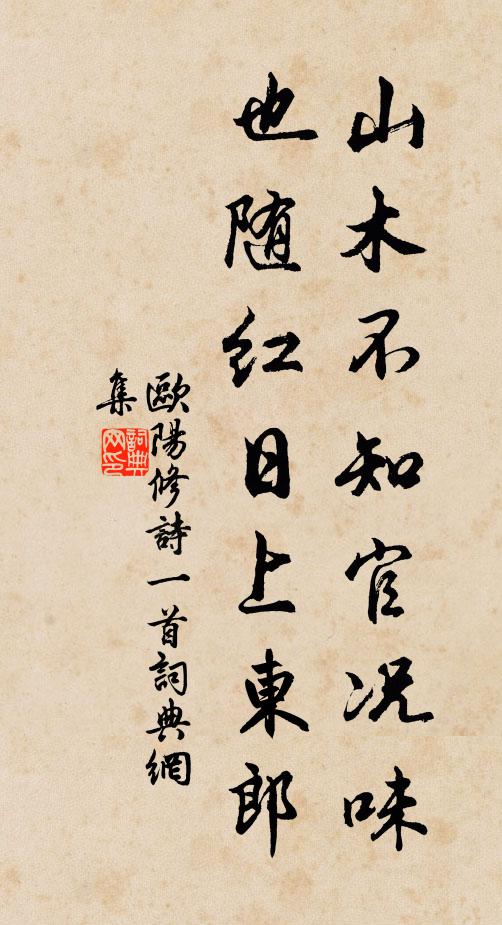 山木不知官况味
也随红日上東郎
歐陽修詩一首詞典網
集
詞典
网印